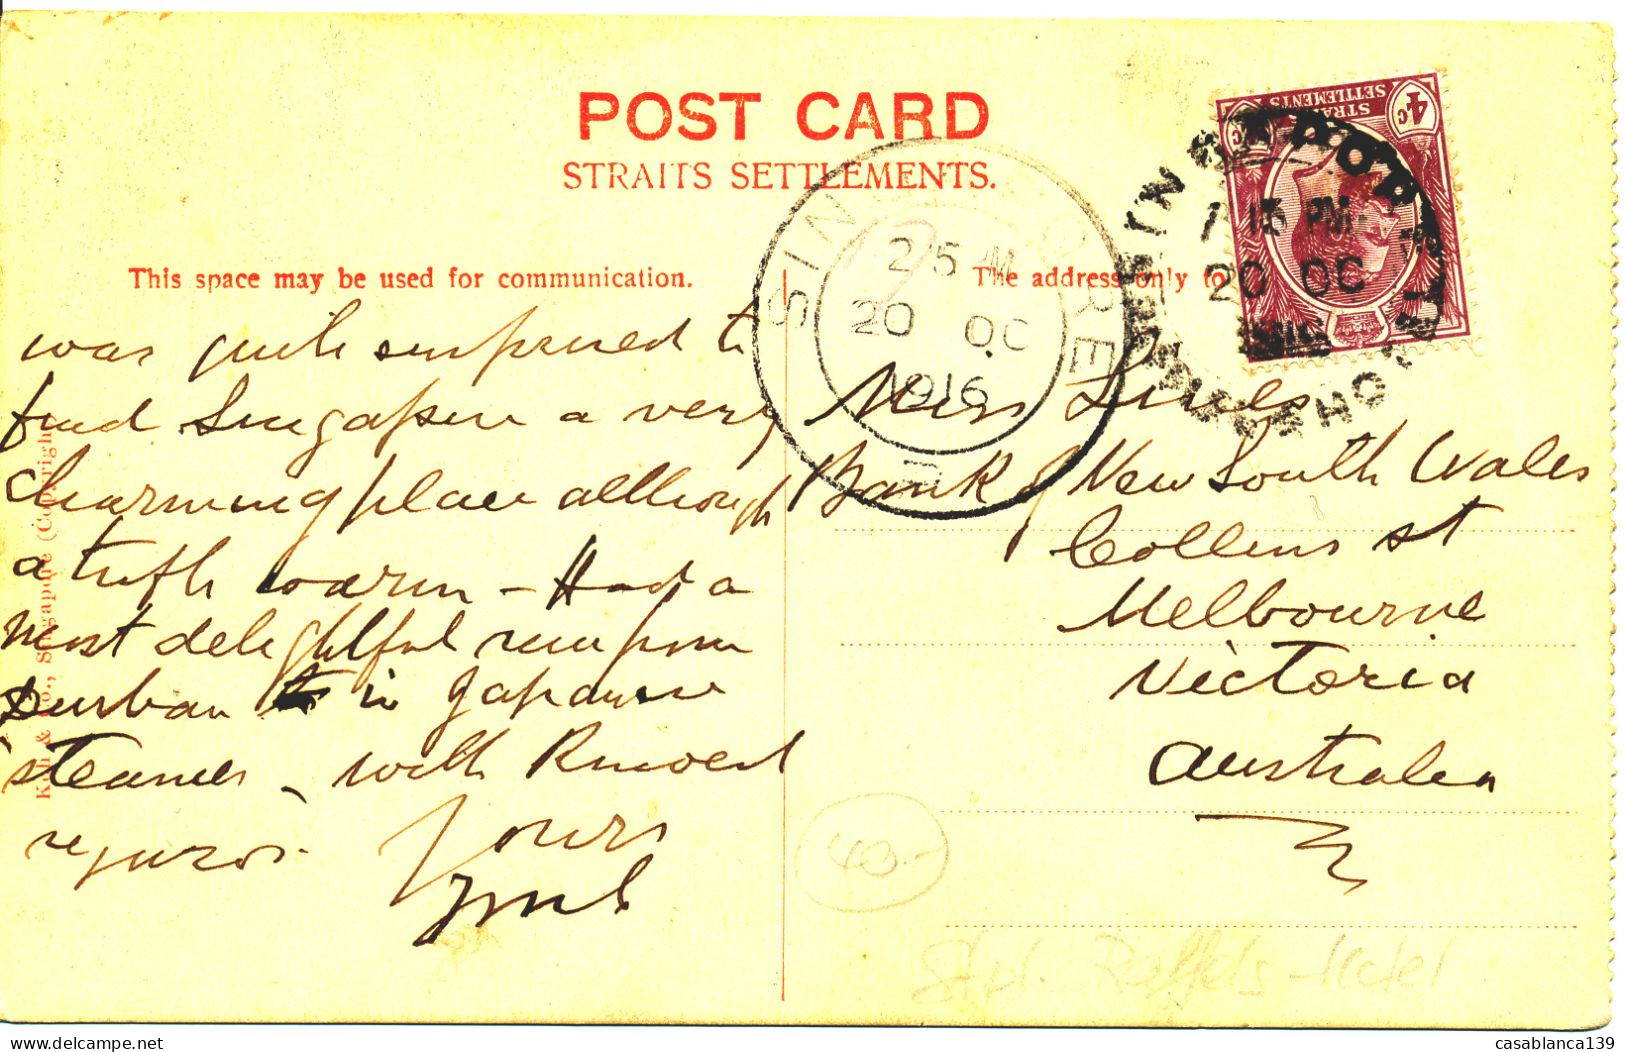 POST CARD
STRAITS SETTLEMENTS.
This space may be used for communication.
The address only to
STRAITS SETTLEMENTS
4c
SINGAPORE
2 15 PM
20 OC
1916
1 15 PM
20 OC
was quite surprised to
find Singapore a very
charming place although
a trifle warm – Had a
most delightful run from
Durban in Japanese
steamer, with Kindest
regards.
Yours
Miss
Bank of New South Wales
Collins st
Melbourne
Victoria
Australia
Co., Singapore (Copyright)
40.-
Raffles-Hotel
casablanca139